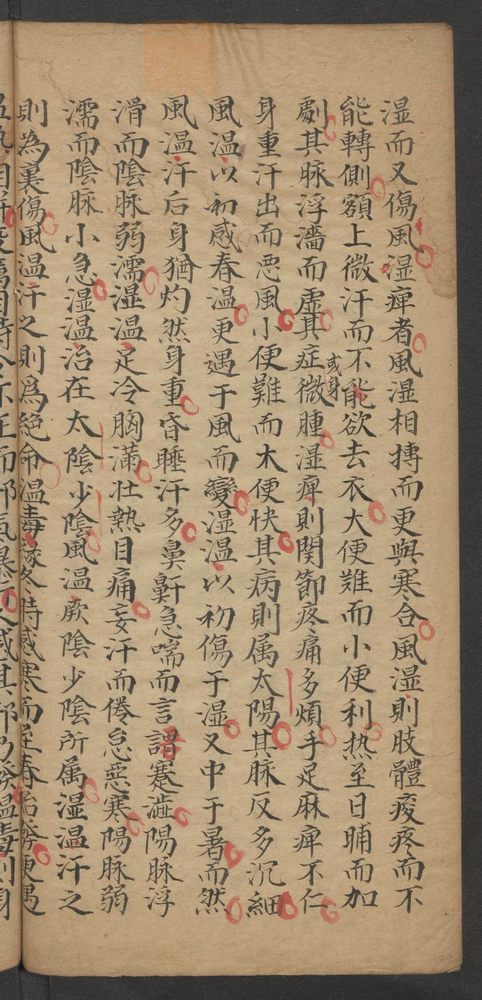 湿而又傷風湿痺者風湿相摶而更與寒合風湿則肢體痠疼而不
能轉側額上微汗而不能欲去衣大便難而小便利热至日晡而加
劇其脉浮濇而虚其症微腫湿痺則関節疼痛多煩手足麻痺不仁
或身
身重汗出而悪風小便難而大便快其病則属太陽其脉反多沉細
風温以初感春温更遇于風而變湿温以初傷于湿又中于暑而然
風温汗后身猶灼然身重昏睡汗多鼻鼾急喘而言語蹇澁陽脉浮
滑而陰脉弱濡湿温足冷胸滿壮熱目痛妄汗而倦怠悪寒陽脉弱
濡而陰脉小急湿温治在太陰少陰風温厥陰少陰所属湿温汗之
則為裏傷風温汗之則爲絶命温毒緣冬時感寒而至春始發更遇